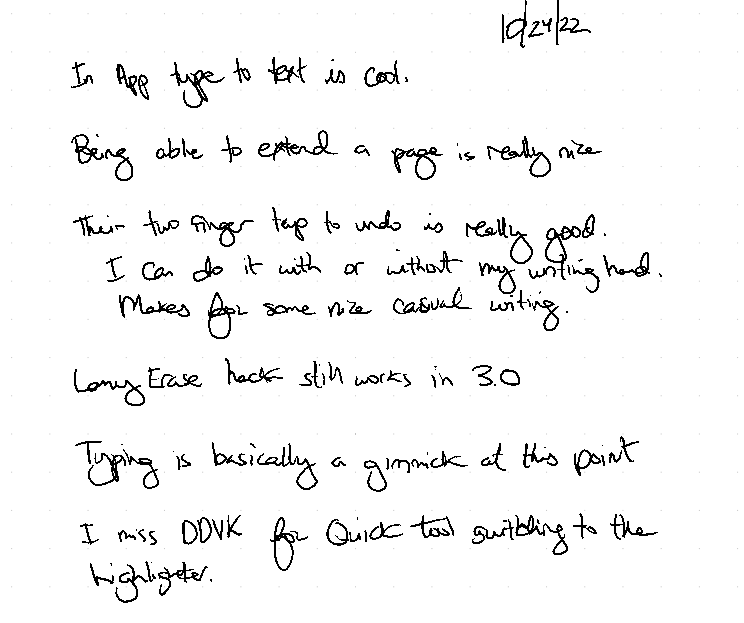 10/24/22
In App type to text is cool.
Being able to extend a page is really nice
Their two finger tap to undo is really good.
I can do it with or without my writing hand.
Makes for some nice casual writing.
Lamy Erase hack still works in 3.0
Typing is basically a gimmick at this point
I miss DDVK for Quick tool switching to the
highlighter.